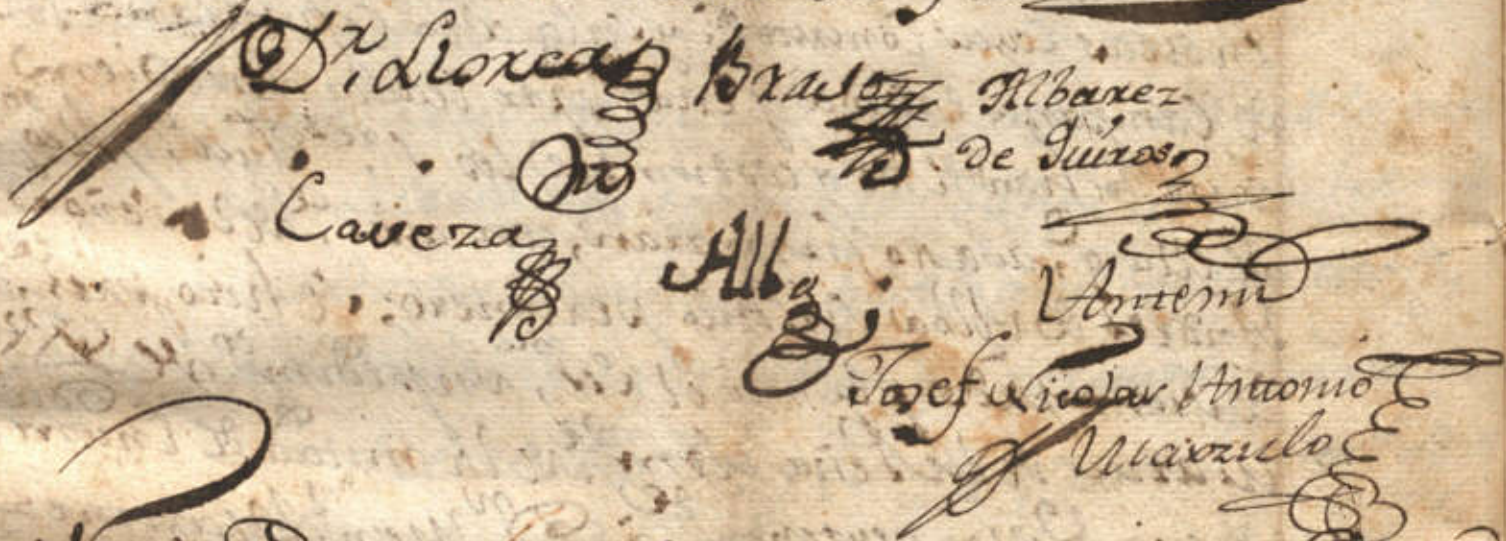 Dr. Llorca Bravo Albarez
de Quiros
Caveza
Antemi
Josef Nicolas Antonio
Marzulo